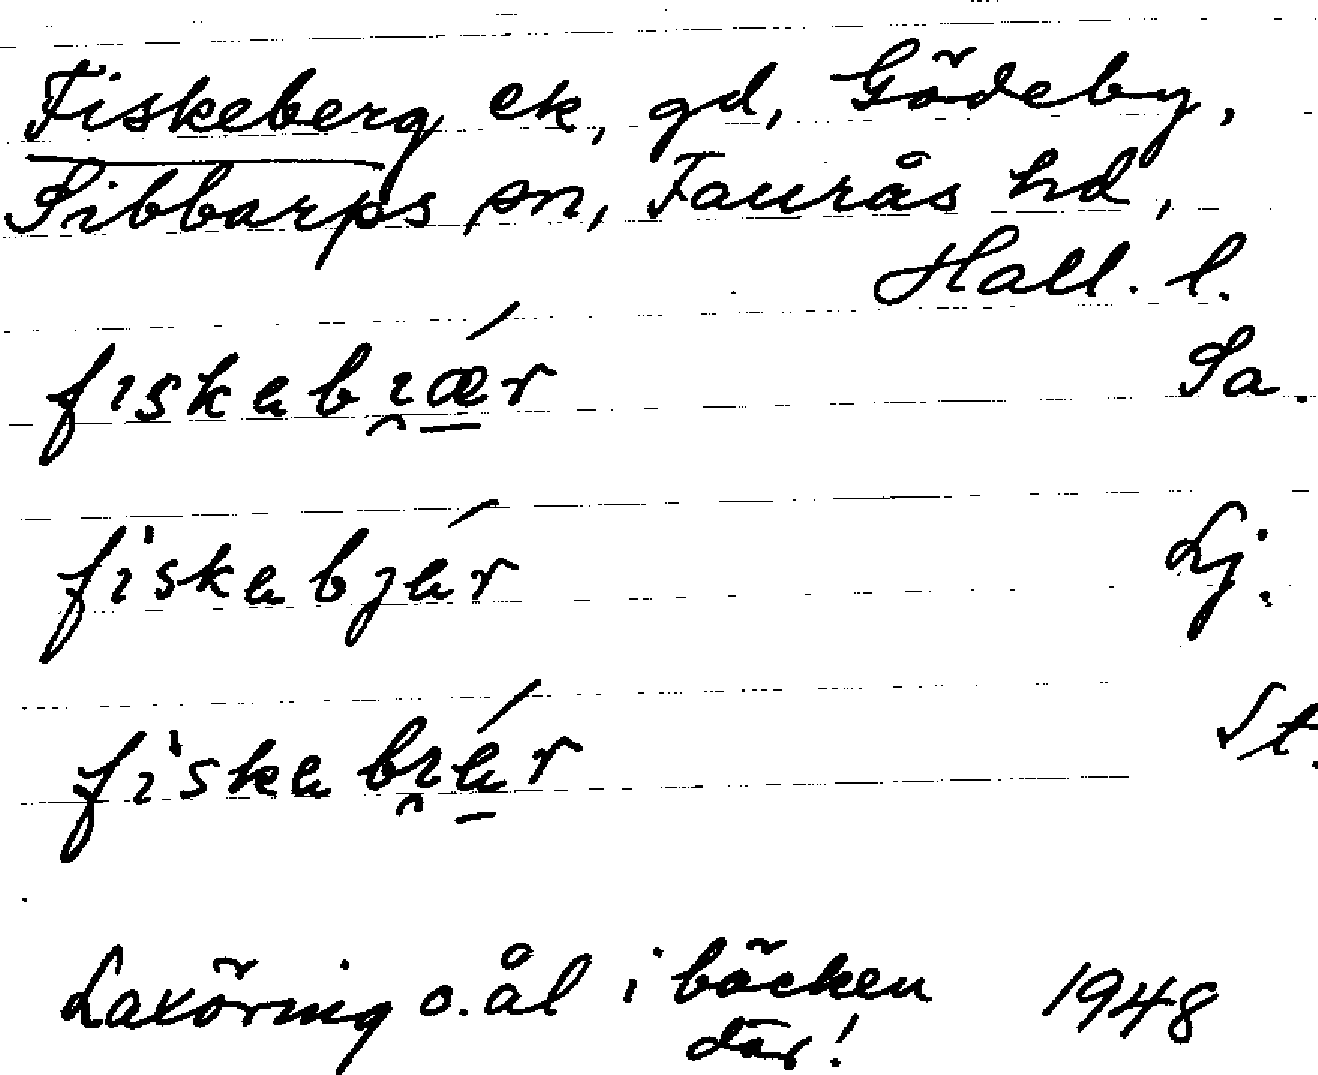 Fiskeberg ek, gd, Gödeby,
Sibbarps sn, Faurås hd,
Hall. l.
fıskabı̯ǽr Sa.
fıskabȷár Lj.
fıskabı̯ár St.
Laxöring o. ål i bäcken
där! 1948